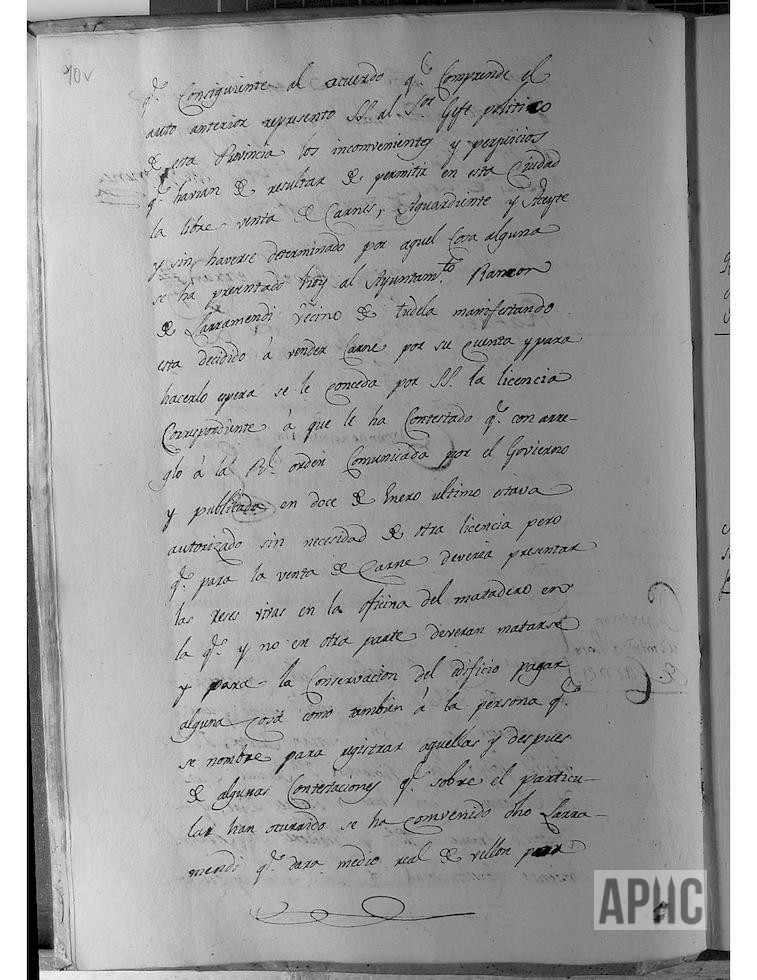 10v
q.e Consiguiente al acuerdo q.e Comprende el
auto anterior represento SS. al S.or Gefe politico
de esta Provincia los inconvenientes y perjuicios
q.e havian de resultar de permitir en esta Ciudad
la libre venta de Carnes, Aguardiente y Aceyte
y sin haverse determinado por aquel Cosa alguna
se ha presentado hoy al Ayuntam.to Ramon
de Larramendi Vecino de tudela manifestando
esta decidido á vender Carne por su Cuenta y para
hacerlo espera se le Conceda por SS. la licencia
Correspondiente á que le ha Contestado q.e con arre-
glo á la R.l orden Comunicada por el Govierno
y publicada en doce de Enero ultimo estava
autorizado sin necesidad de otra licencia pero
q.e para la venta de Carne deveria presentar
las reses vivas en la oficina del matadero en
la q.e y no en otra parte deveran matarse
y para la Conservacion del edificio pagar
alguna Cosa como tambien á la persona q.e
se nombre para registrar aquellas y despues
de algunas Contestaciones q.e sobre el particu-
lar han ocurrido se ha Convenido dho Larra-
mendi q.e dara medio real de vellon por
APHC